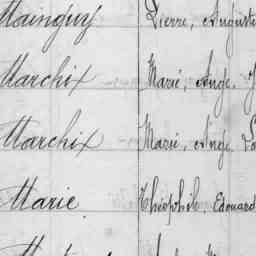 Mainguy Pierre, Auguste
Marchix Marie, Ange,
Marchix Marie, Ange
Marie Théophile, Edouard